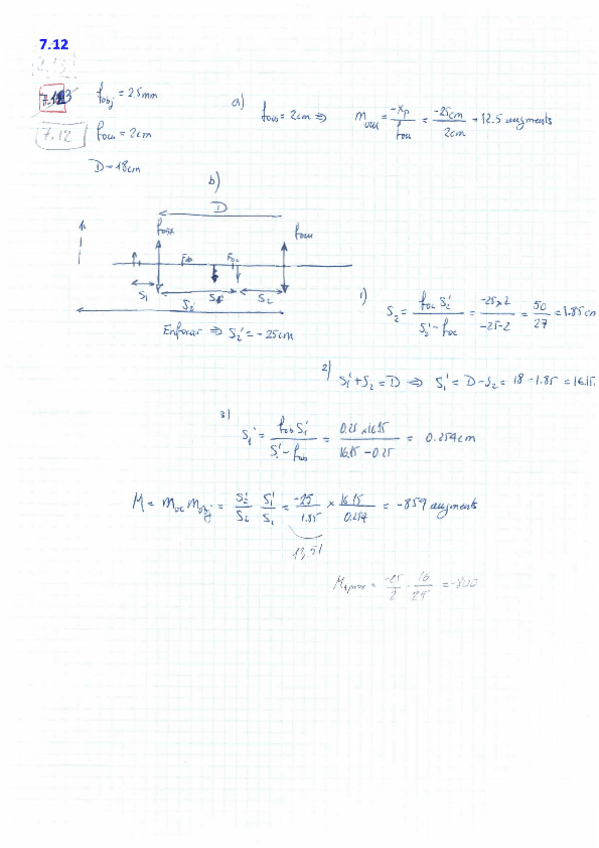 7.12
7.13
7.12
f_obj = 2.5mm
f_ocu = 2cm
D = 18cm
a) f_ocu = 2cm ⇒ m_ocu = -x_p / f_ocu = -25cm / 2cm = 12.5 augments
b)
D
f_obj f_ocu
F_ob F_oc
S_1 S_1' S_2
S_2'
Enfocar ⇒ S_2' = -25cm
1) S_2 = f_oc S_2' / (S_2' - f_oc) = -25×2 / (-25-2) = 50/27 = 1.85cm
2) S_1' + S_2 = D ⇒ S_1' = D - S_2 = 18 - 1.85 = 16.15
3) S_1 = f_ob S_1' / (S_1' - f_ob) = 0.25×16.15 / (16.15 - 0.25) = 0.254cm
M = m_oc m_obj = S_2'/S_2 S_1'/S_1 = -25/1.85 × 16.15/0.254 = -859 augments
13,51
M_aprox = -25/2 · 16/.25 = -800